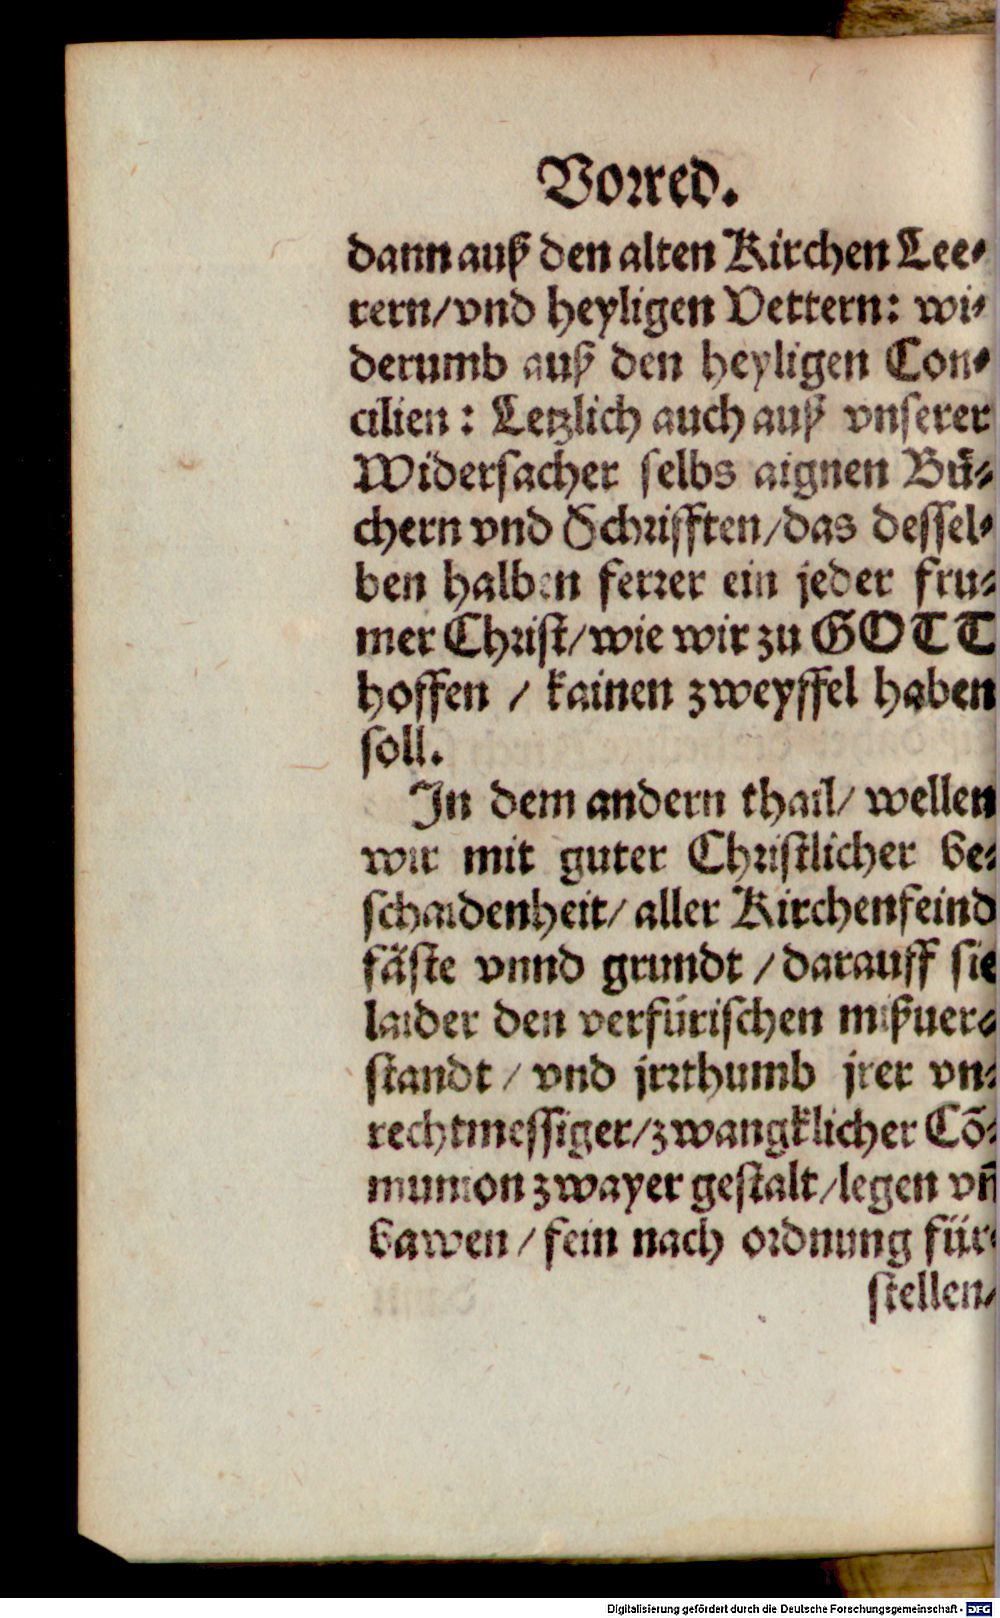 Vorred.
dann auß den alten Kirchen Lee-
rern/vnd heyligen Vettern: wi-
derumb auß den heyligen Con-
cilien: Letzlich auch auß vnserer
Widersacher selbs aignen Bü-
chern vnd Schrifften/das dessel-
ben halben ferrer ein jeder fru-
mer Christ/wie wir zu GOTT
hoffen / kainen zweyffel haben
soll.
In dem andern thail/ wellen
wir mit guter Christlicher be-
schaidenheit/ aller Kirchenfeind
fäste vnnd grundt / darauff sie
laider den verfürischen mißuer-
standt / vnd jrrthumb jrer vn-
rechtmessiger/zwangklicher Cõ-
munion zwayer gestalt/legen vñ
bawen / fein nach ordnung für-
stellen/
Digitalisierung gefördert durch die Deutsche Forschungsgemeinschaft - DFG